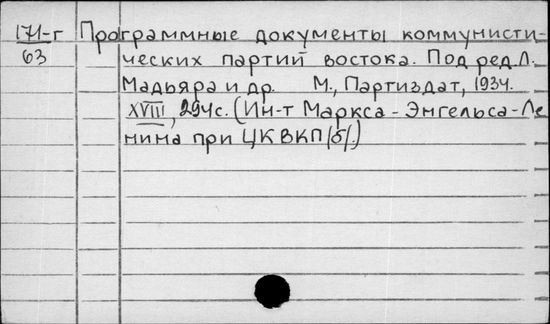 171-г Программные документы коммунисти-
63 ческих партий востока. Под ред. Л.
Мадьяра и др. М., Партиздат, 1934.
XVIII, 294с. (Ин-т Маркса-Энгельса-Ле
нина при ЦК ВКП/б/.)